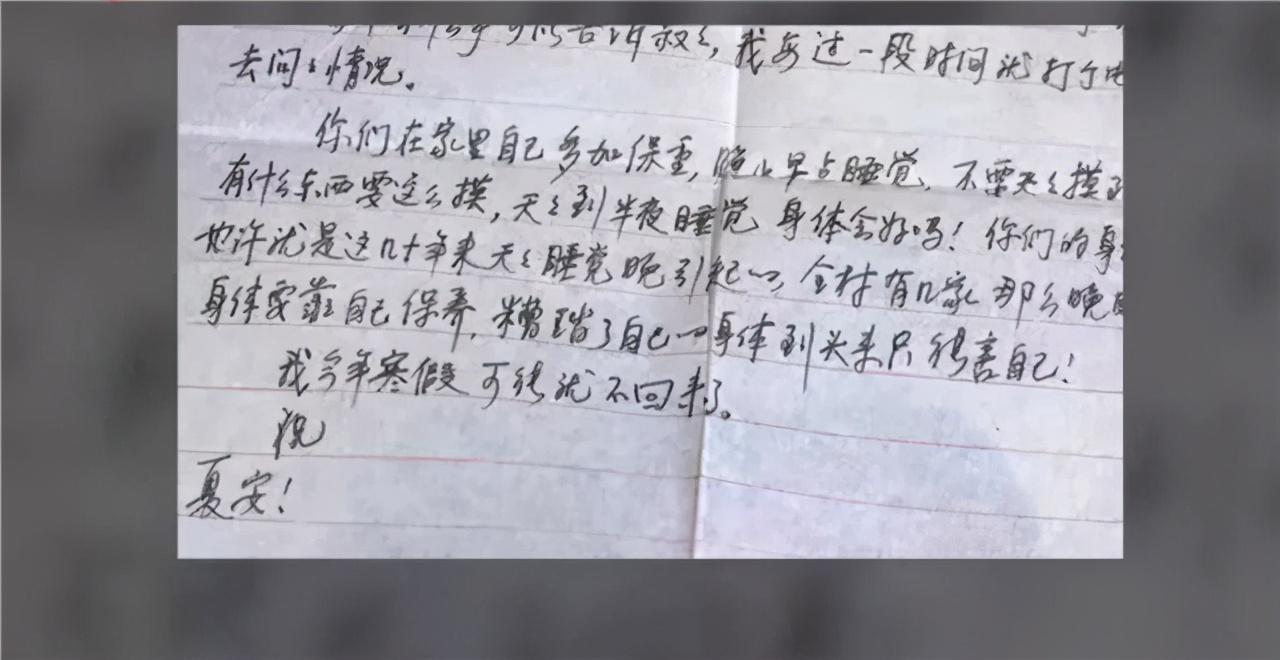 可以告诉叔々，我每过一段时间就打个电
去问々情况。
你们在家里自己多加保重，晚上早点睡觉，不要天々摸到
有什么东西要这么摸，天々到半夜睡觉 身体会好吗！你们的身
也许就是这几十年来天々睡觉晚引起的，全村有几家那么晚
身体要靠自己保养，糟踏了自己的身体到头来只得害自己！
我今年寒假可能就不回来了。
祝
夏安！